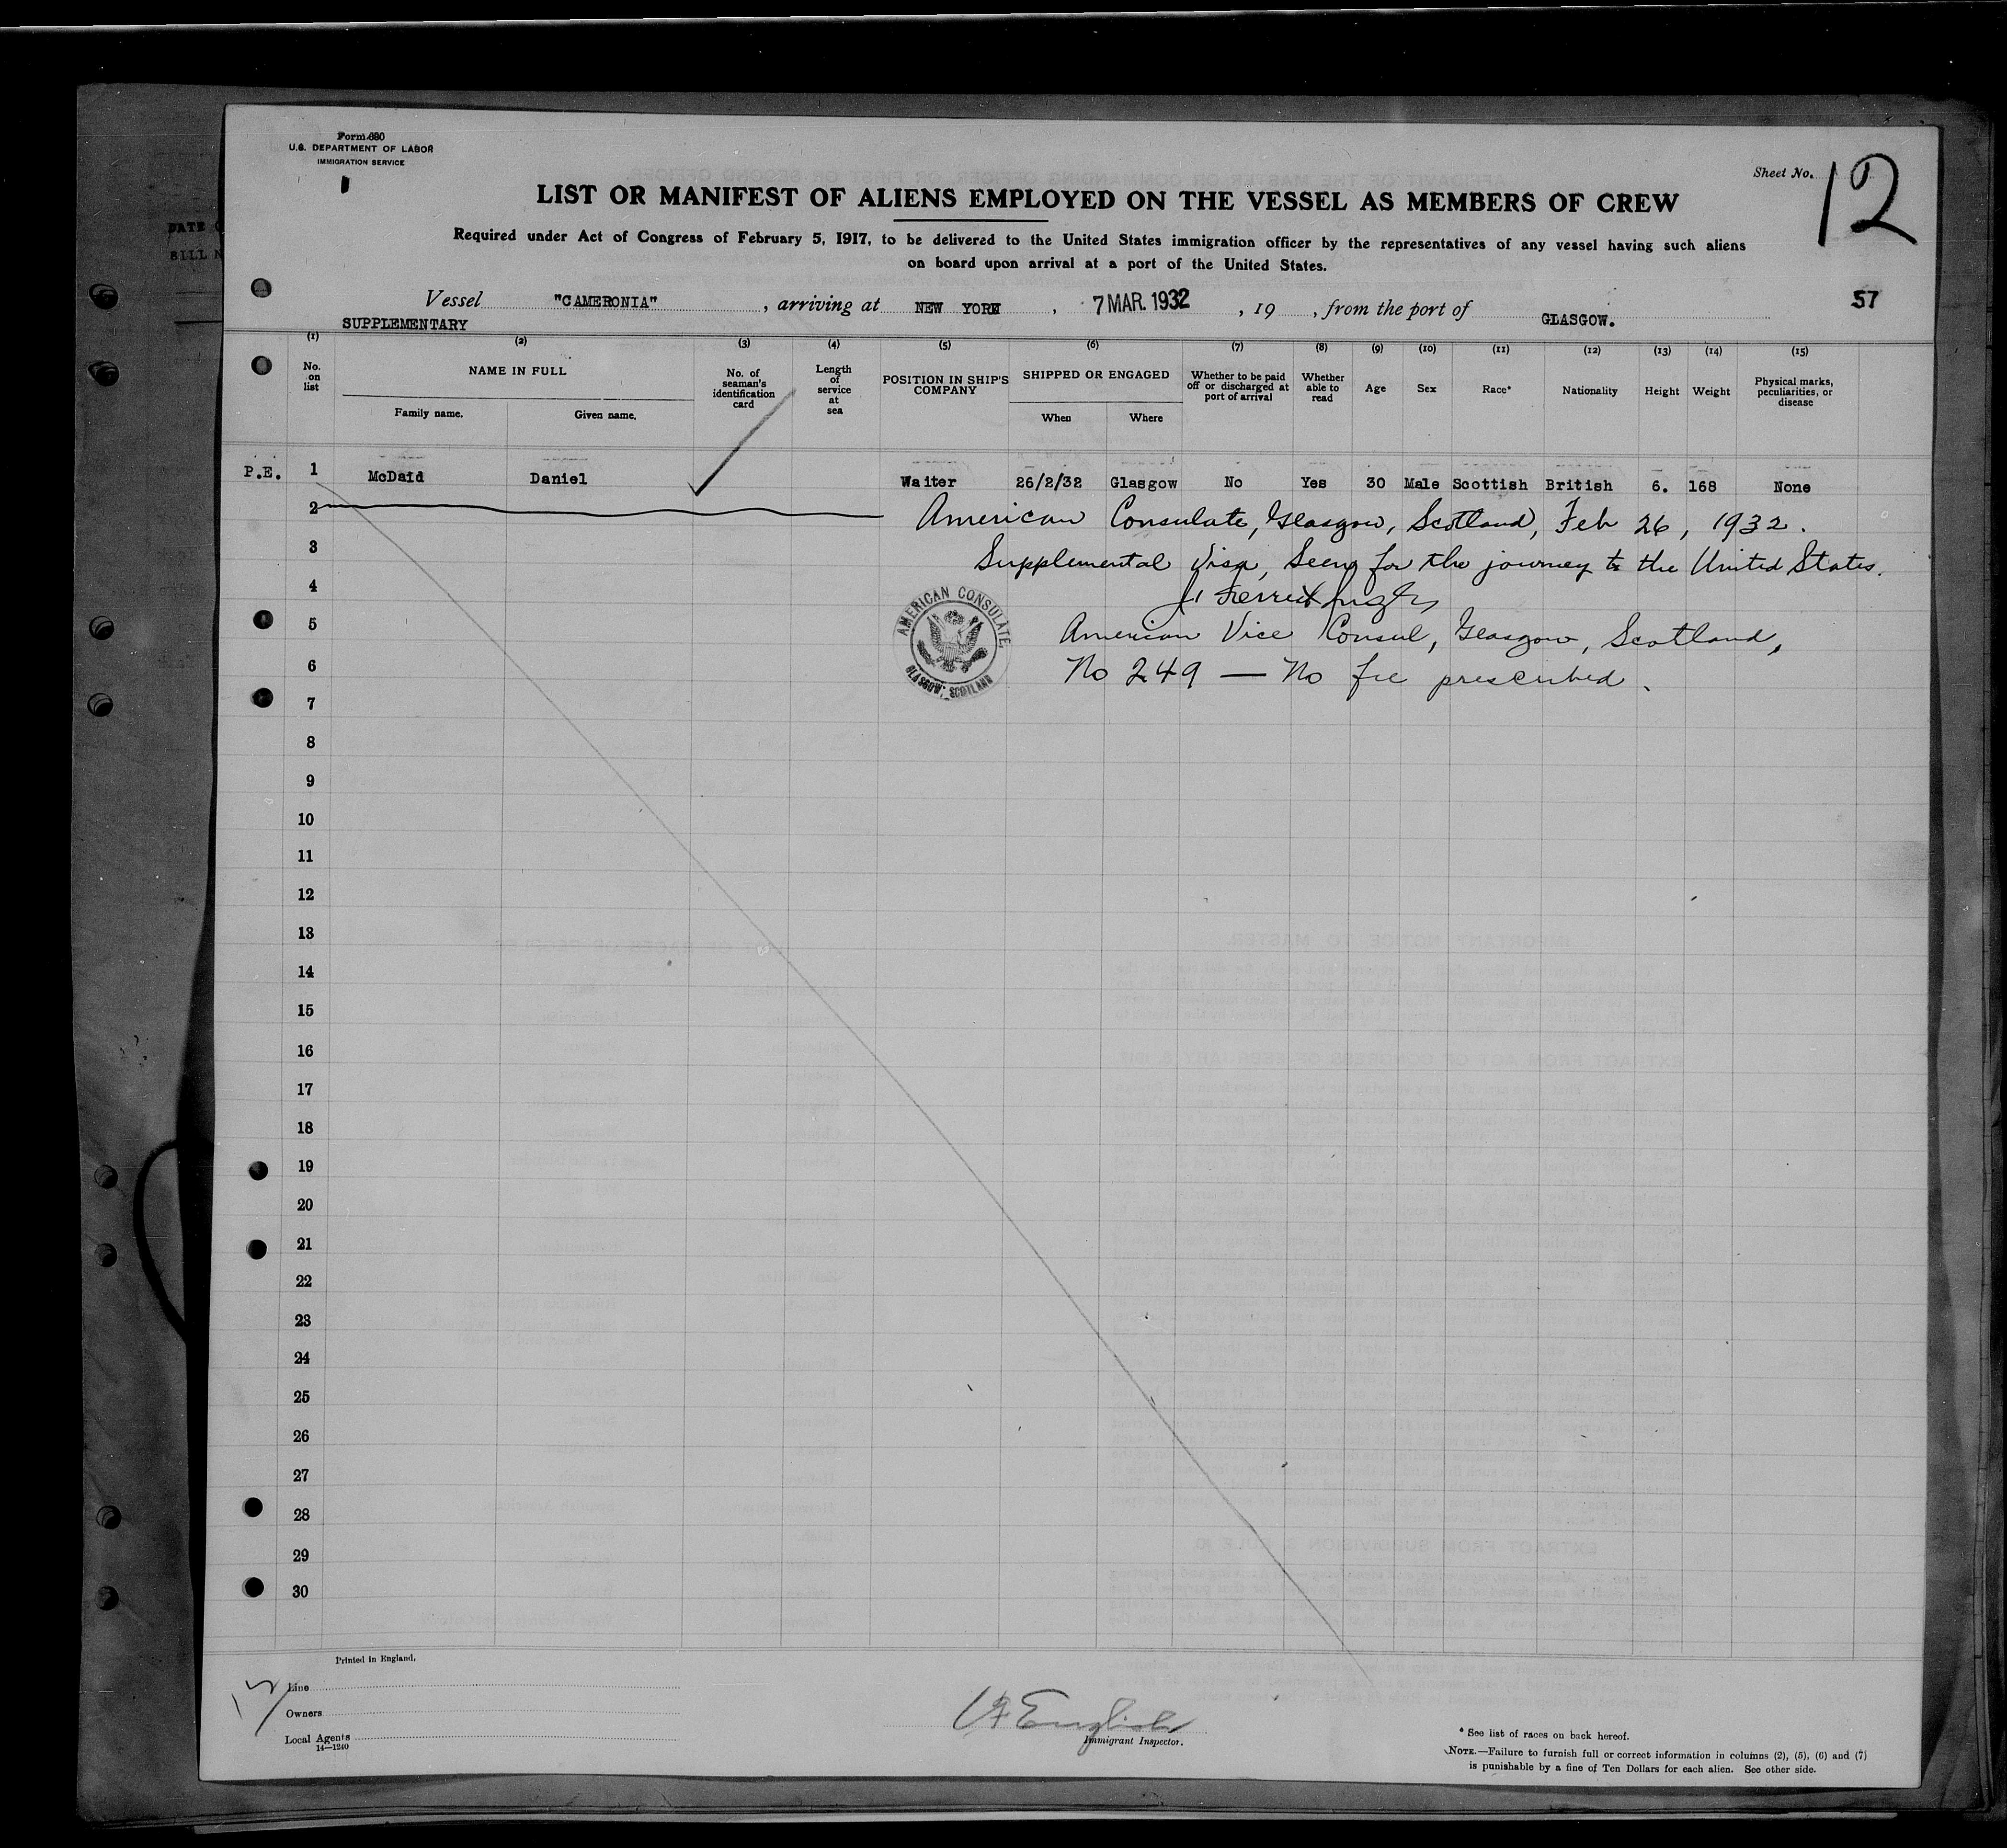 Form 680
U.S. DEPARTMENT OF LABOR
IMMIGRATION SERVICE
Sheet No. 12
LIST OR MANIFEST OF ALIENS EMPLOYED ON THE VESSEL AS MEMBERS OF CREW
Required under Act of Congress of February 5, 1917, to be delivered to the United States immigration officer by the representatives of any vessel having such aliens
on board upon arrival at a port of the United States.
Vessel "CAMERONIA", arriving at NEW YORK, 7 MAR. 1932, 19 , from the port of GLASGOW.
57
SUPPLEMENTARY
(1) (2) (3) (4) (5) (6) (7) (8) (9) (10) (11) (12) (13) (14) (15)
No. on list
NAME IN FULL
Family name. Given name.
No. of seaman's identification card
Length of service at sea
POSITION IN SHIP'S COMPANY
SHIPPED OR ENGAGED
When Where
Whether to be paid off or discharged at port of arrival
Whether able to read
Age
Sex
Race*
Nationality
Height
Weight
Physical marks, peculiarities, or disease
P.E. 1 McDaid Daniel Waiter 26/2/32 Glasgow No Yes 30 Male Scottish British 6. 168 None
2 American Consulate, Glasgow, Scotland, Feb 26, 1932.
3 Supplemental Visa, Seen for the journey to the United States.
4
AMERICAN CONSULATE,
GLASGOW, SCOTLAND
5 American Vice Consul, Glasgow, Scotland,
6 No 249 — No fee prescribed.
7
8
9
10
11
12
13
14
15
16
17
18
19
20
21
22
23
24
25
26
27
28
29
30
Printed in England.
Line
Owners
Local Agents
14—1240
English
Immigrant Inspector.
* See list of races on back hereof.
NOTE.—Failure to furnish full or correct information in columns (2), (5), (6) and (7)
is punishable by a fine of Ten Dollars for each alien. See other side.